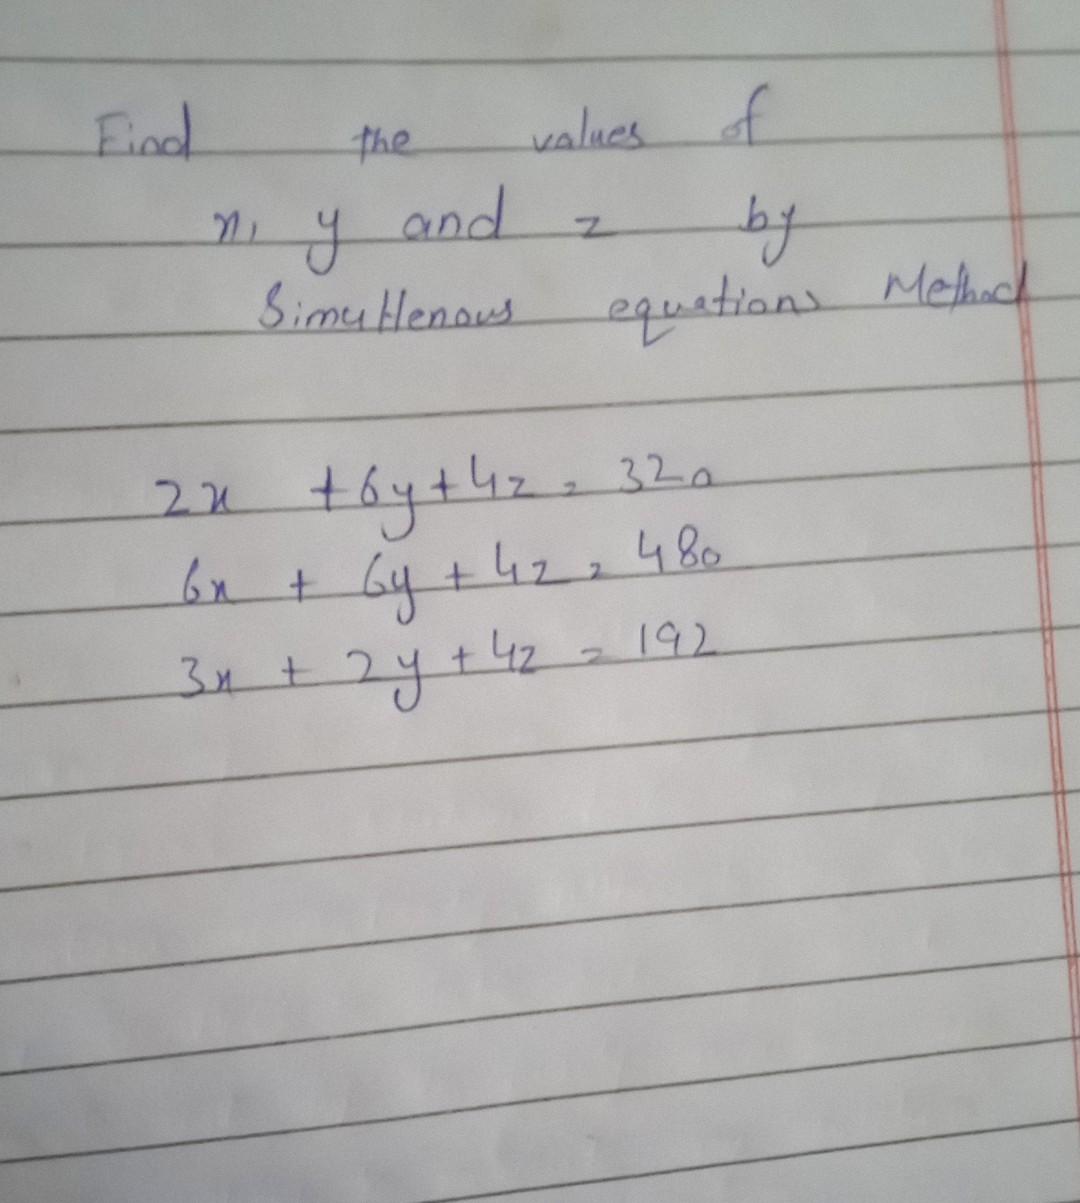 Find the values of
x, y and z by
Simultenous equations Method
2x + 6y + 4z = 320
6x + 6y + 4z = 480
3x + 2y + 4z = 192